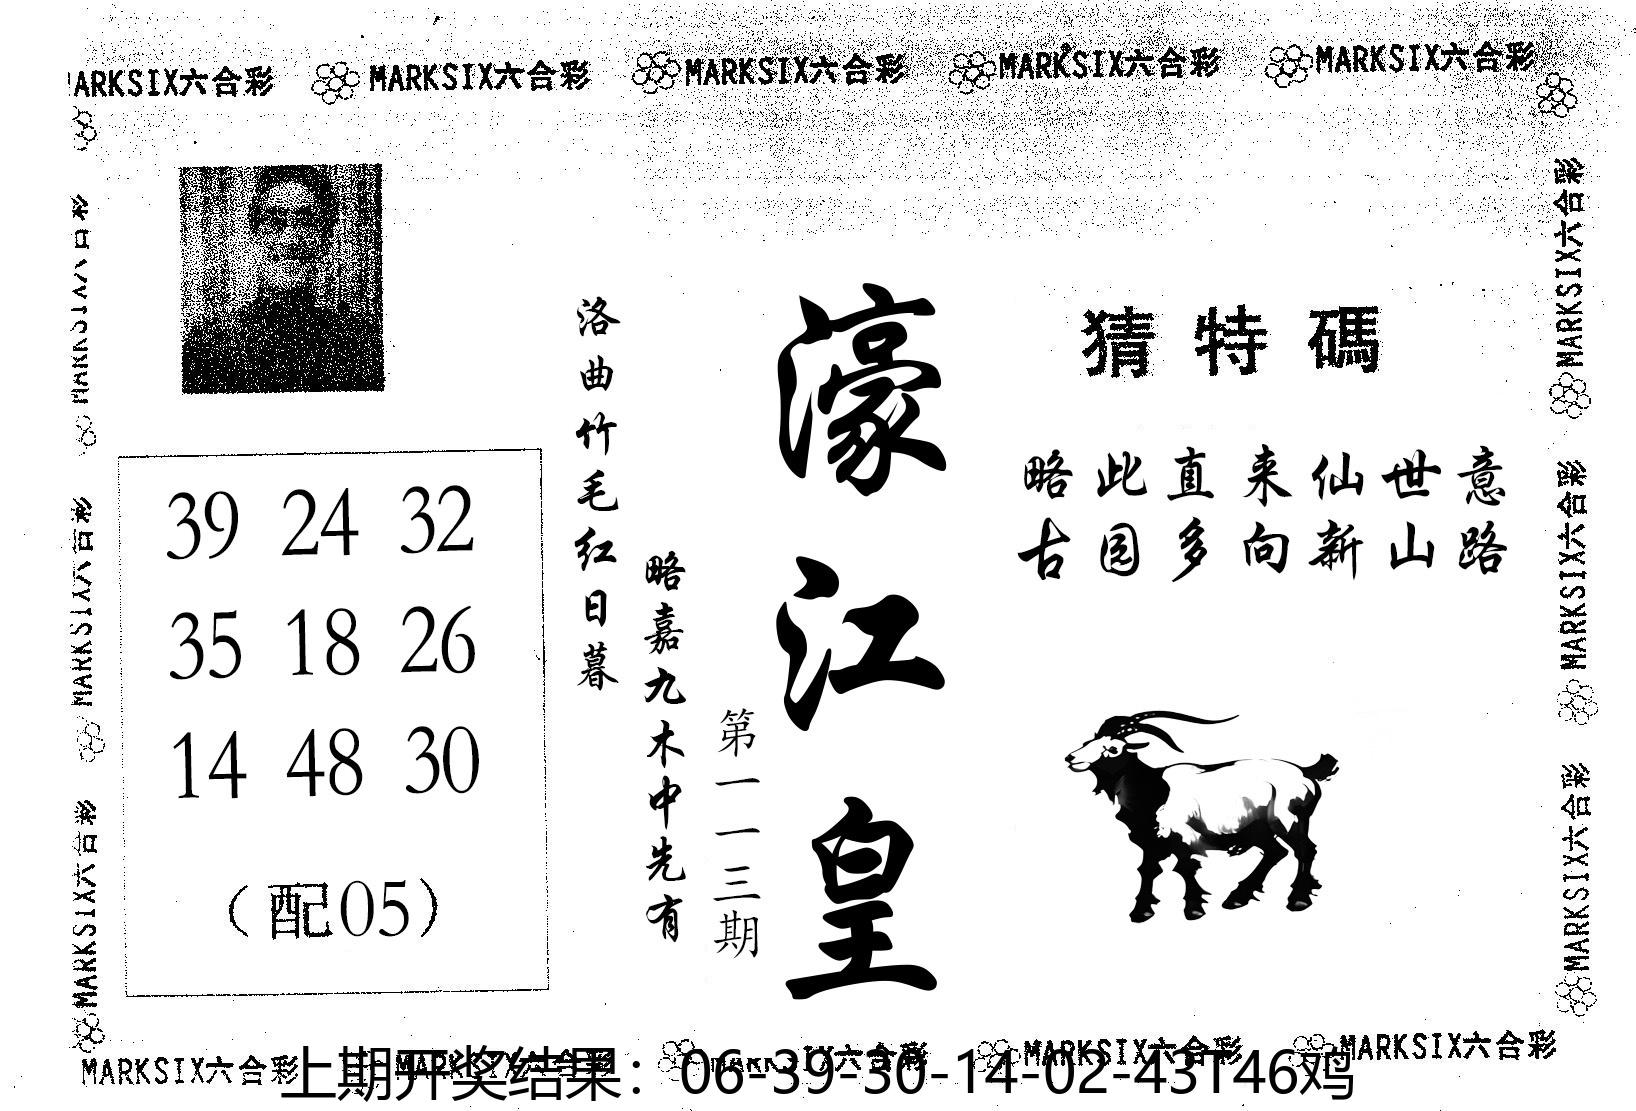 MARKSIX六合彩 MARKSIX六合彩 MARKSIX六合彩 MARKSIX六合彩 MARKSIX六合彩
猜特碼
略此直来仙世意
古园多向新山路
濠江皇
第一一三期
略嘉九木中先有
洛曲竹毛红日暮
39 24 32
35 18 26
14 48 30
（配05）
MARKSIX六合彩
MARKSIX六合彩
MARKSIX六合彩
MARKSIX六合彩
MARKSIX六合彩
MARKSIX六合彩
MARKSIX六合彩 MARKSIX六合彩 MARKSIX六合彩 MARKSIX六合彩 MARKSIX六合彩
上期开奖结果：06-39-30-14-02-43T46鸡